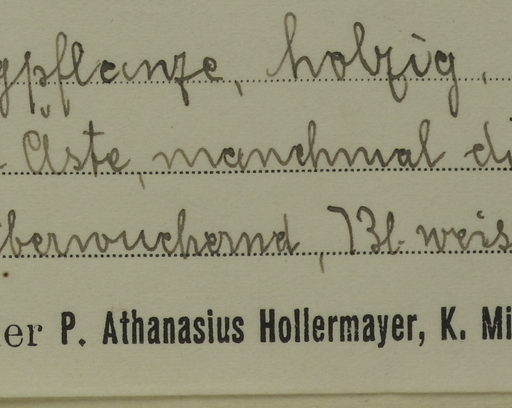 gpflanze, holzig,
Äste, manchmal di
überwuchernd, Bl. weis
er P. Athanasius Hollermayer, K. Mi